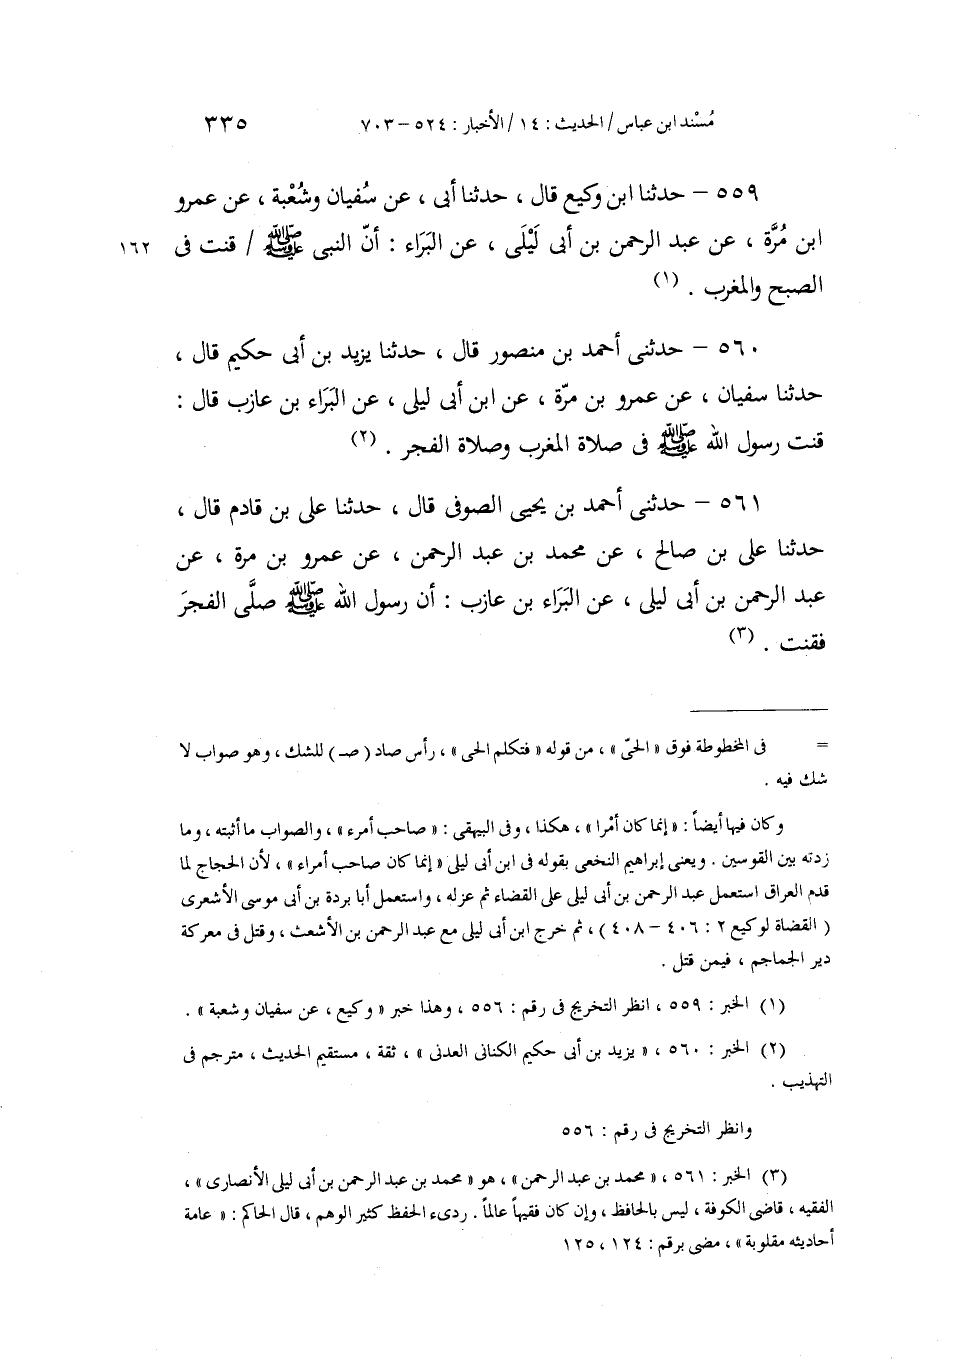 مُسْند ابن عباس / الحديث : ١٤ / الأخبار : ٥٢٤ – ٧٠٣ ٣٣٥
٥٥٩ – حدثنا ابن وكيع قال ، حدثنا أبى ، عن سُفيان وشُعْبة ، عن عمرو
ابن مُرَّة ، عن عبد الرحمن بن أبى لَيْلَى ، عن البَرَاء : أنّ النبى ﷺ / قنت فى ١٦٢
الصبح والمغرب . (١)
٥٦٠ – حدثنى أحمد بن منصور قال ، حدثنا يزيد بن أبى حكيم قال ،
حدثنا سفيان ، عن عمرو بن مرّة ، عن ابن أبى ليلى ، عن البَرَاء بن عازب قال :
قنت رسول الله ﷺ فى صلاة المغرب وصلاة الفجر . (٢)
٥٦١ – حدثنى أحمد بن يحيى الصوفى قال ، حدثنا على بن قادم قال ،
حدثنا على بن صالح ، عن محمد بن عبد الرحمن ، عن عمرو بن مرة ، عن
عبد الرحمن بن أبى ليلى ، عن البَرَاء بن عازب : أن رسول الله ﷺ صلَّى الفجرَ
فقنت . (٣)
= فى المخطوطة فوق « الحىّ » ، من قوله « فتكلم الحى » ، رأس صاد ( صـ ) للشك ، وهو صواب لا
شك فيه .
وكان فيها أيضاً : « إنما كان أمْرا » ، هكذا ، وفى البيهقى : « صاحب أمرء » ، والصواب ما أثبته ، وما
زدته بين القوسين . ويعنى إبراهيم النخعى بقوله فى ابن أبى ليلى « إنما كان صاحب أمراء » ، لأن الحجاج لما
قدم العراق استعمل عبد الرحمن بن أبى ليلى على القضاء ثم عزله ، واستعمل أبا بردة بن أبى موسى الأشعرى
( القضاة لوكيع ٢ : ٤٠٦ – ٤٠٨ ) ، ثم خرج ابن أبى ليلى مع عبد الرحمن بن الأشعث ، وقتل فى معركة
دير الجماجم ، فيمن قتل .
(١) الخبر : ٥٥٩ ، انظر التخريج فى رقم : ٥٥٦ ، وهذا خبر « وكيع ، عن سفيان وشعبة » .
(٢) الخبر : ٥٦٠ ، « يزيد بن أبى حكيم الكنانى العدنى » ، ثقة ، مستقيم الحديث ، مترجم فى
التهذيب .
وانظر التخريج فى رقم : ٥٥٦
(٣) الخبر : ٥٦١ ، « محمد بن عبد الرحمن » ، هو « محمد بن عبد الرحمن بن أبى ليلى الأنصارى » ،
الفقيه ، قاضى الكوفة ، ليس بالحافظ ، وإن كان فقيهاً عالماً . ردىء الحفظ كثير الوهم ، قال الحاكم : « عامة
أحاديثه مقلوبة » ، مضى برقم : ١٢٤ ، ١٢٥